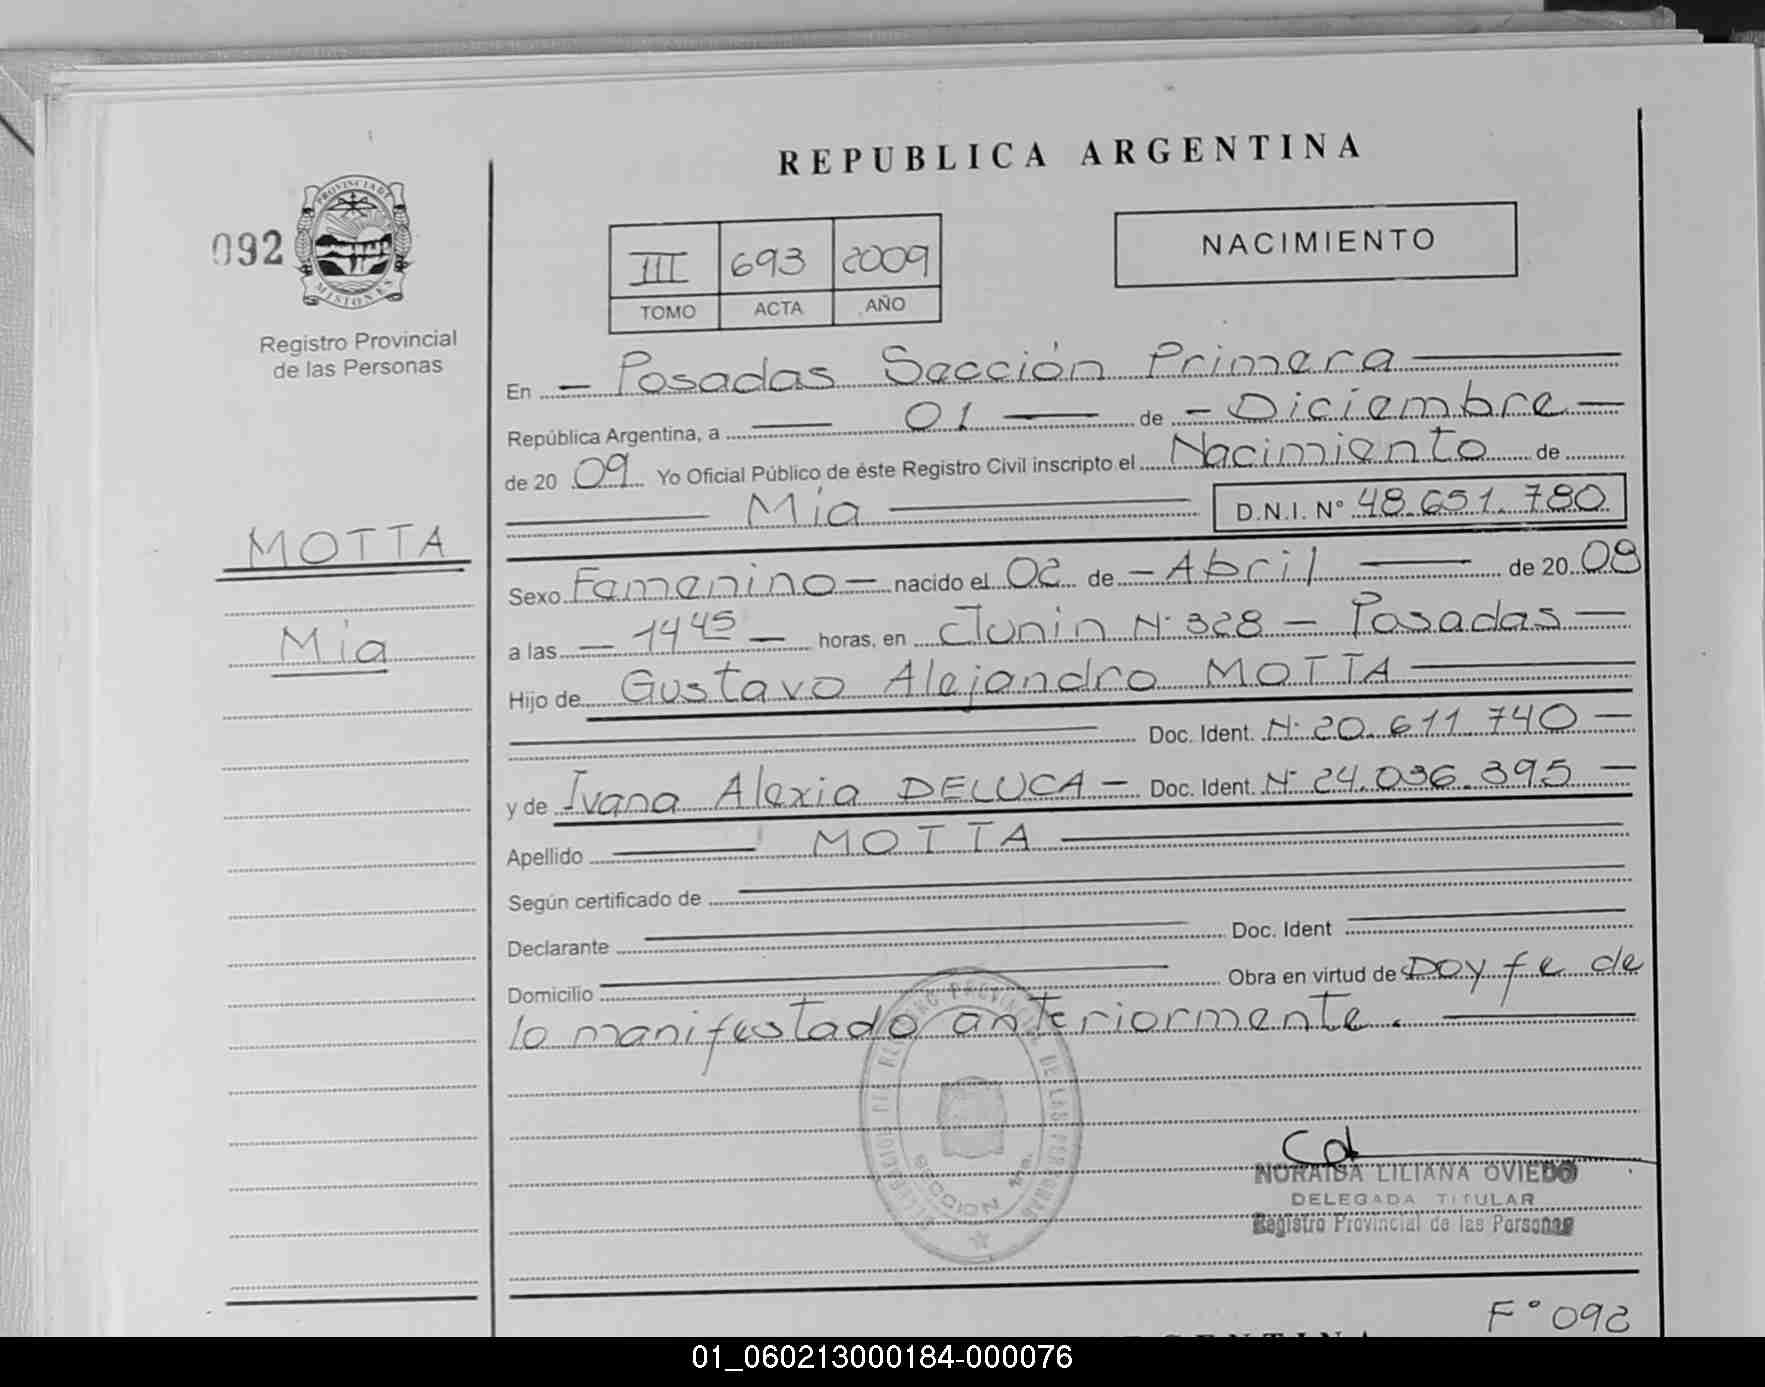 REPUBLICA ARGENTINA
092
PROVINCIA DE
MISIONES
Registro Provincial
de las Personas
III 693 2009
TOMO ACTA AÑO
NACIMIENTO
En - Posadas Sección Primera
República Argentina, a 01 de - Diciembre -
de 2009 Yo Oficial Público de éste Registro Civil inscripto el Nacimiento de
Mía D.N.I. N° 48.651.780
MOTTA
Mía
Sexo Femenino - nacido el 02 de - Abril de 2008
a las - 14 45 - horas, en Junín N° 328 - Posadas -
Hijo de Gustavo Alejandro MOTTA
Doc. Ident. N° 20.611.740 -
y de Ivana Alexia DELUCA - Doc. Ident. N° 24.036.395 -
Apellido MOTTA
Según certificado de
Declarante Doc. Ident
Domicilio Obra en virtud de Doy fe de
lo manifestado anteriormente.
SECCION 1ra.
NORAIDA LILIANA OVIEDO
DELEGADA TITULAR
Registro Provincial de las Personas
F° 092
01_060213000184-000076